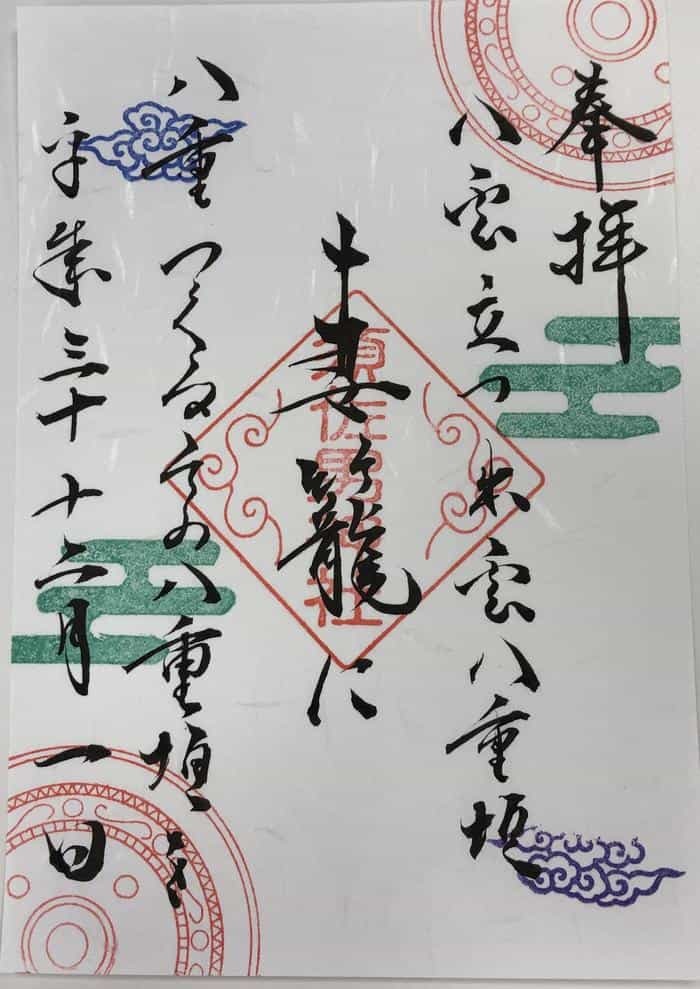 奉拝
八雲立つ出雲八重垣
妻籠に
八重つくるその八重垣を
平成三十十二月一日
須佐男社